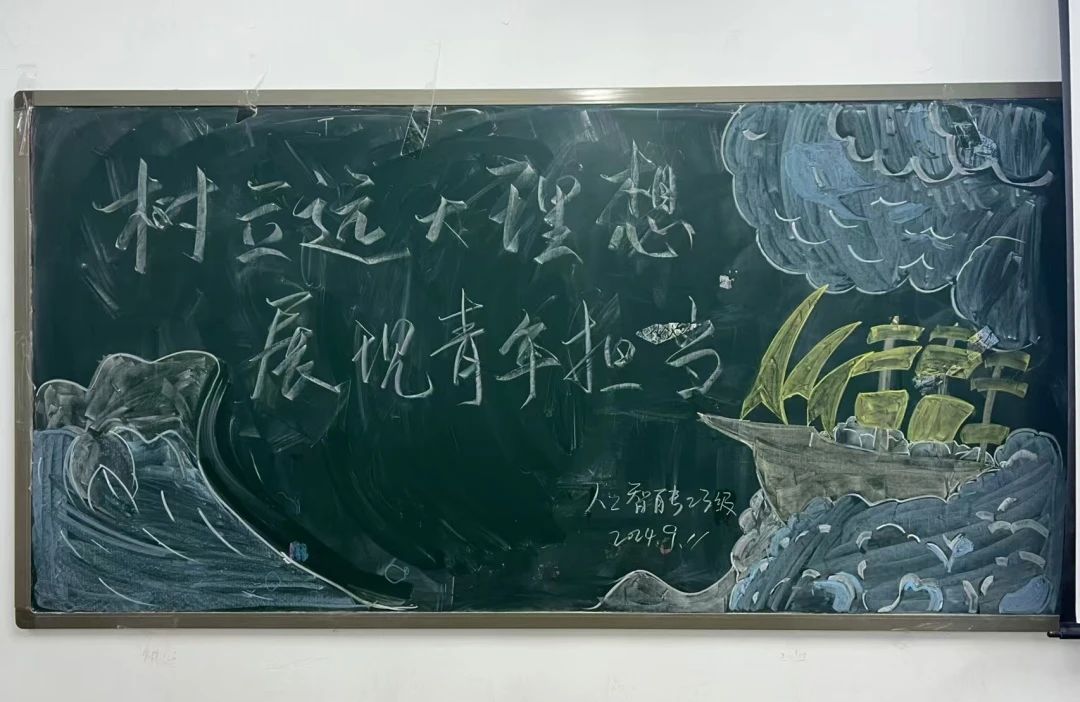 树立远大理想
展现青年担当
人工智能专23级
2024.9.11